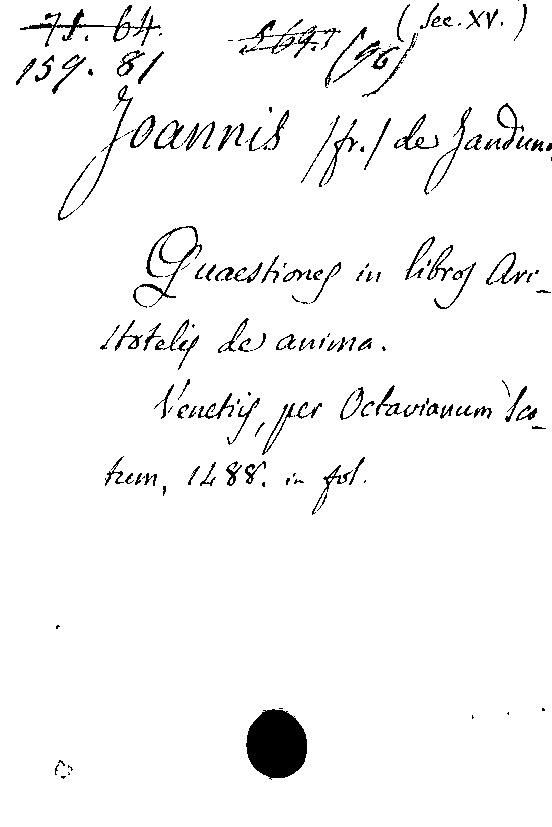 71. 64. (Sec. XV.)
159. 81 (96)
Joannis /fr./ de Janduno
Quaestiones in libros Ari-
stotelis de anima.
Venetiis, per Octavianum Sco-
tum, 1488. in fol.